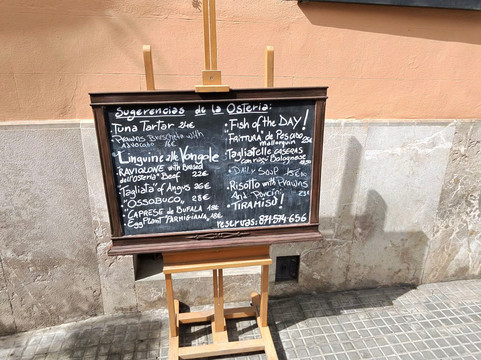 Sugerencias de la Osteria:
Tuna Tartar 24€
Prawns Bruscheta with
Advocado 16€
Linguine alle Vongole
RAVIOLONE with Brased
dell'Osteria Beef 22€
"Tagliata" of Angus 26€
"OSSOBUCO" 28€
"CAPRESE de BUFALA 18€
"Egg Plant PARMIGIANA 18€
Fish of the DAY!
FRITURA de Pescado 25€
mallorquin
Tagliatelle CASERAS
con ragú Bolognese
DAILY Soup
Risotto with Prawns
And Porcini 23€
TIRAMISÚ!
reservas: 871574656